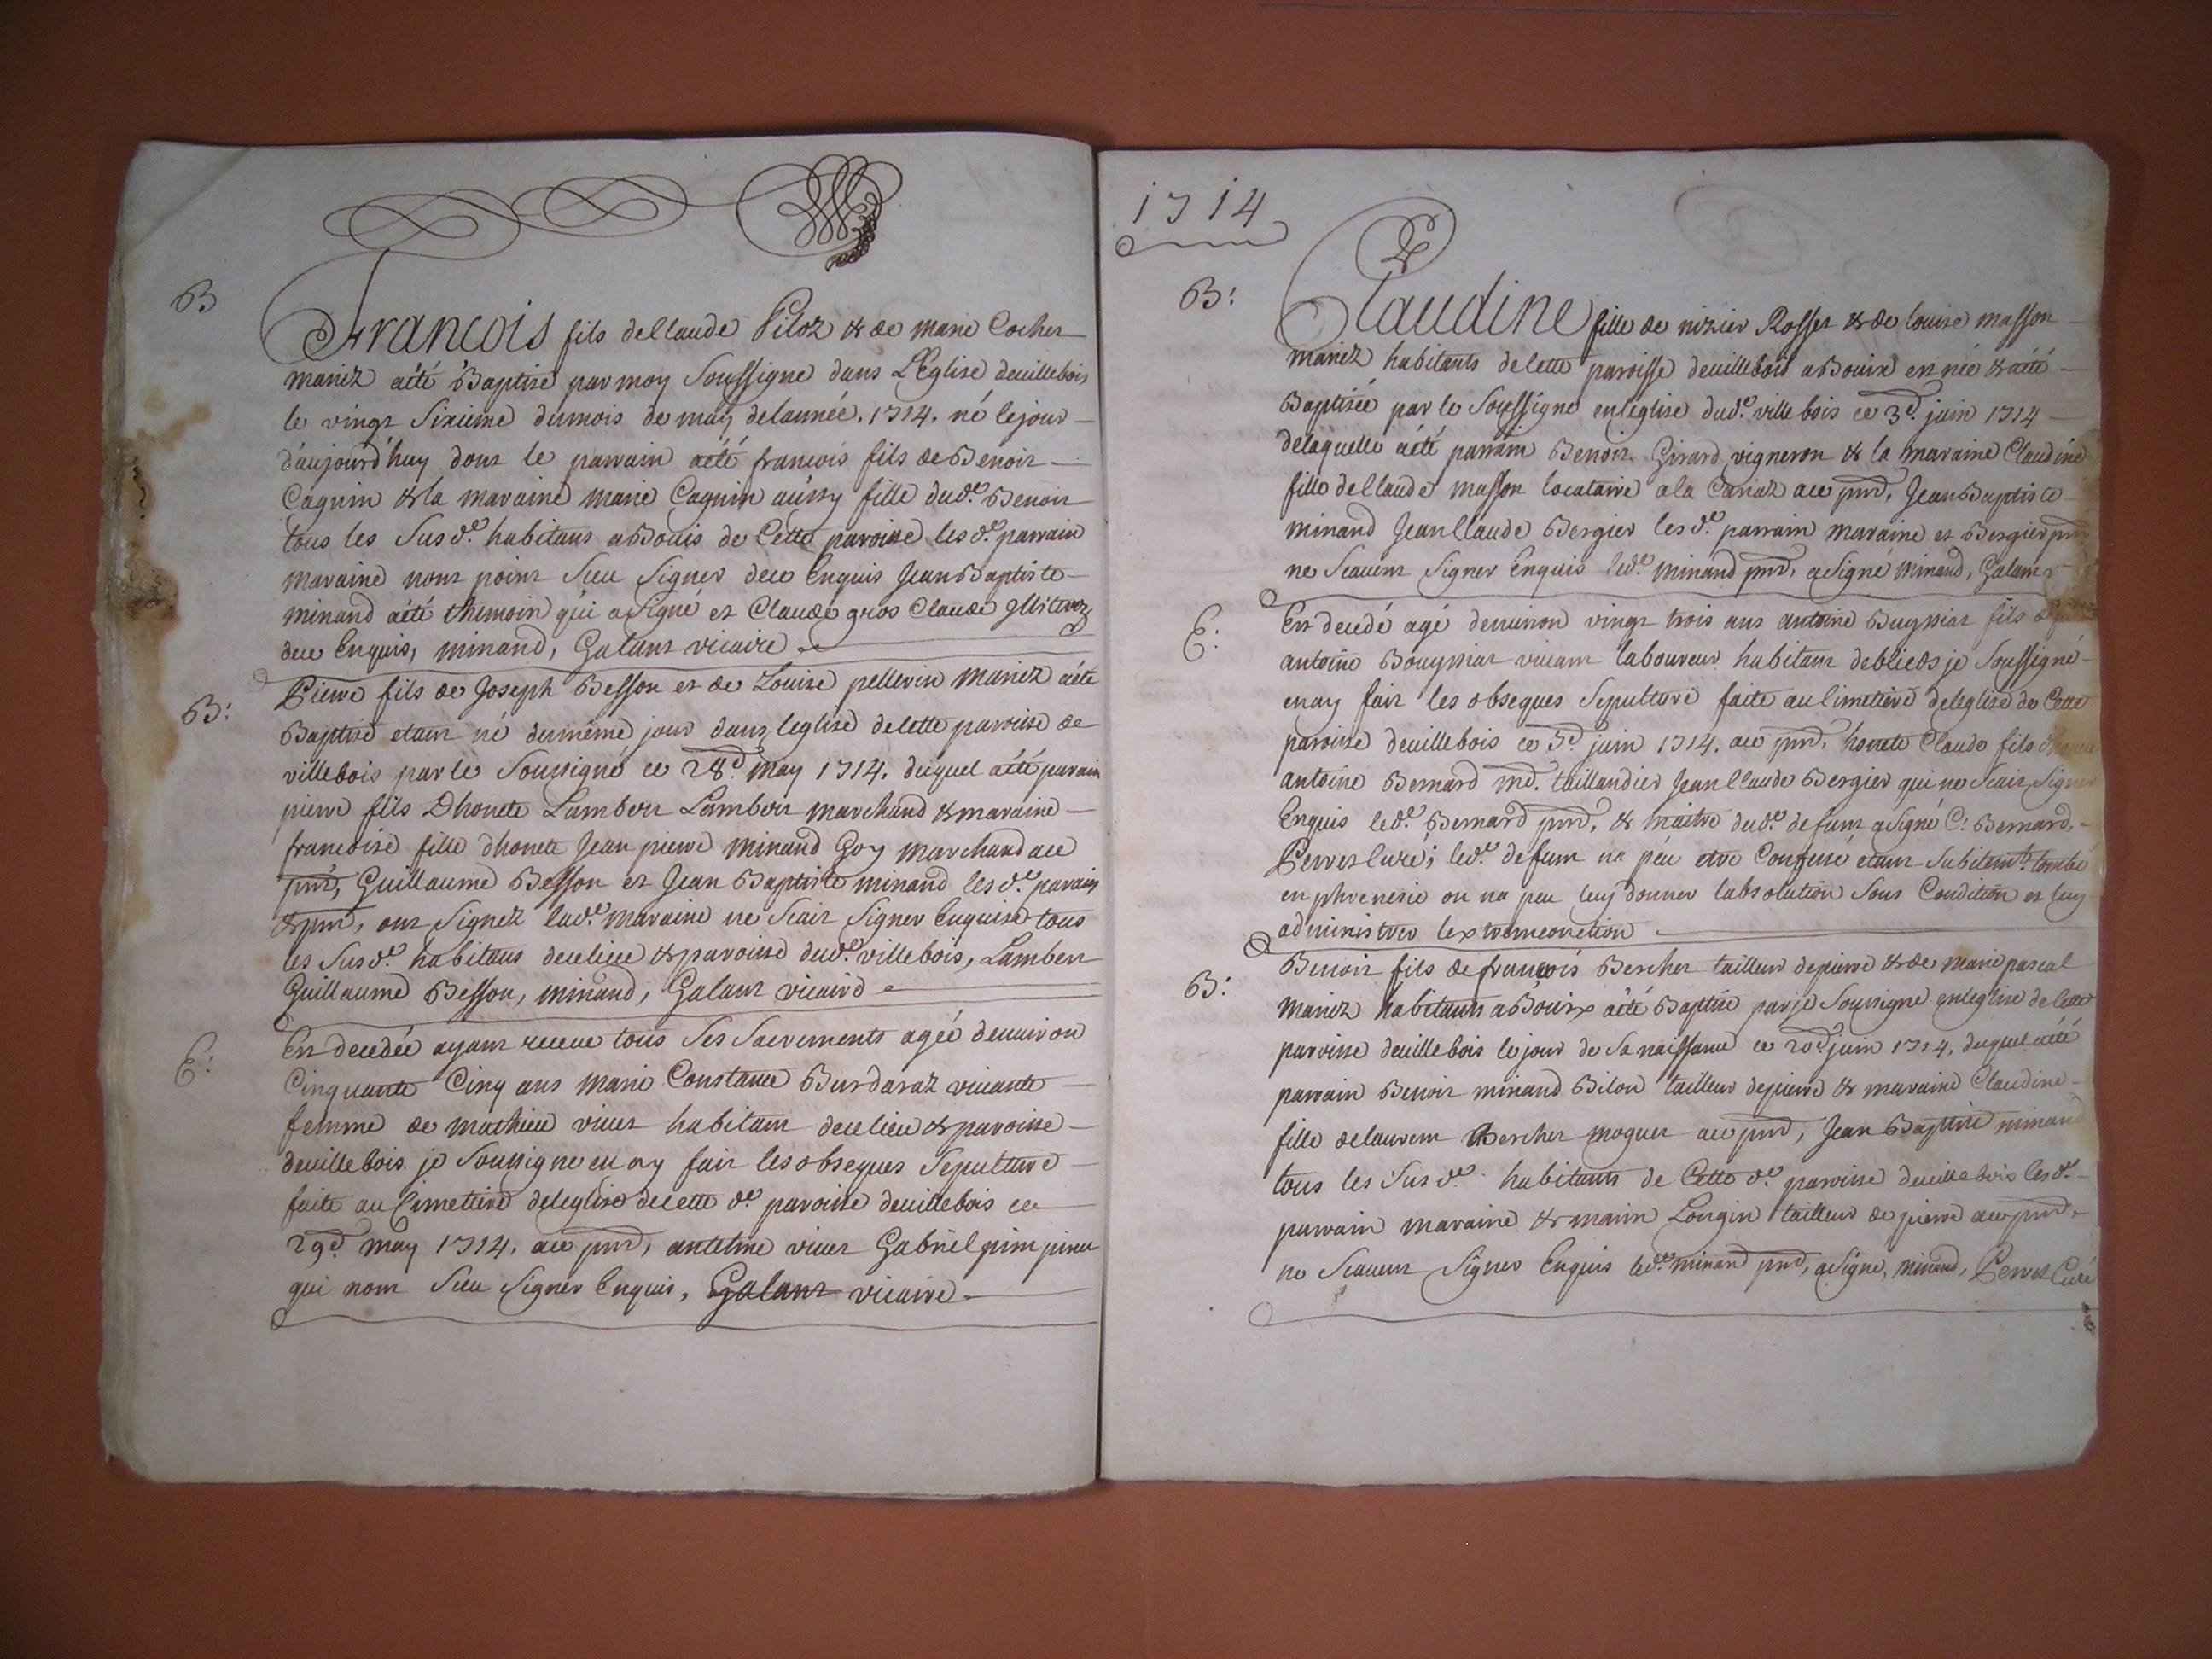 B
François fils de Claude Piloz & de marie Cocher
mariez aété Baptisé par moy Soussigne dans L'Eglise deuillebois
le vingt Sixieme dumois de may delannée. 1714. né lejour
d'aujourd'huy dont le parrain aété francois fils de Benoit
Cagnin & la maraine marie Cagnin aussy fille dud.e Benoit
tous les Sus d.e habitans aBouis de Cette paroisse les d.e parrain
maraine nont point Sceu Signer dece Enquis Jean Baptiste
minand aété themoin qui asigné et Claude gros Claude
dece Enquis, minand, Galant vicaire
B:
Pierre fils de Joseph Besson et de Louise pellerin mariez aété
Baptisé etant né dumême jour dans leglise decette paroisse de
villebois par le Soussigné ce 28.d may 1714. duquel aété parain
pierre fils Dhonete Lambert Lambert marchand & maraine
francoise fille dhonete Jean pierre minand Goy marchand aec
pnd, Guillaume Besson et Jean Baptiste minand les d.e parain
& pnd, ont Signez lad.e maraine ne Scait Signer Enquise tous
les Sus d.e habitans decelieu & paroisse dud.e villebois, Lambert
Guillaume Besson, minand, Galant vicaire
E:
Est decedée ayant receue tous Ses Sacrements agée denuiron
Cinquante Cinq ans marie Constance Burdaraz viuante
femme de mathieu viuet habitant decelieu & paroisse
deuillebois je Soussigne en ay fait les obseques Sepulture
faite au Cimetiere deleglise decette d.e paroisse deuillebois ce
29.d may 1714. aec pnd, antelme viuet Gabriel pin pinet
qui nont Sceu Signer Enquis, Galant vicaire
1714
B:
Claudine fille de nizier Rosset & de louise masson
mariez habitants decette paroisse deuillebois aBouix est née & aété
Baptisée par le Soussigné enleglise dud.e villebois ce 3.d juin 1714
delaquelle aété parrain Benoit Girard vigneron & la maraine Claudine
fille de Claude masson locataire ala Cariaz aec pnd, Jean Baptiste
minand Jean Claude Bergier les d.e parrain maraine et Bergier pnd
ne Scauent Signer Enquis led.e minand pnd, asigné minand, Galant
E:
Est decedé agé denuiron vingt trois ans antoine Buyssiat fils
antoine Bouyssiat viuant laboureur habitant deblieds je Soussigné
enay fait les obseques Sepulture faite au Cimetiere deleglise de Cette
paroisse deuillebois ce 5.d juin 1714. aec pnd, honete Claude fils
antoine Bernard md. taillandier Jean Claude Bergier qui ne Scait Signer
Enquis led.e Bernard pnd, & maitre dud.e defunt asigné C: Bernard,
Perret Curé; led.e defunt na peu etre Confessé etant Subitemt. tombé
en phrenesie on na peu luy donner labsolution Sous Condition et luy
administrer lextremeonction
B:
Benoit fils de francois Bercher tailleur depierre & de marie pascal
mariez habitants aBouix aété Baptisé par je Soussigne enleglise de Cette
paroisse deuillebois lejour de Sa naissance ce 20.d juin 1714. duquel aété
parrain Benoit minand Bilon tailleur depierre & maraine Claudine
fille de laurent Bercher moguet aec pnd, Jean Baptiste minand
tous les Sus d.e habitants de Cette d.e paroisse deuillebois les d.e
parrain maraine & marin Longin tailleur de pierre aec pnd,
ne Scauent Signer Enquis led.e minand pnd, asigné, minand, Perret Curé